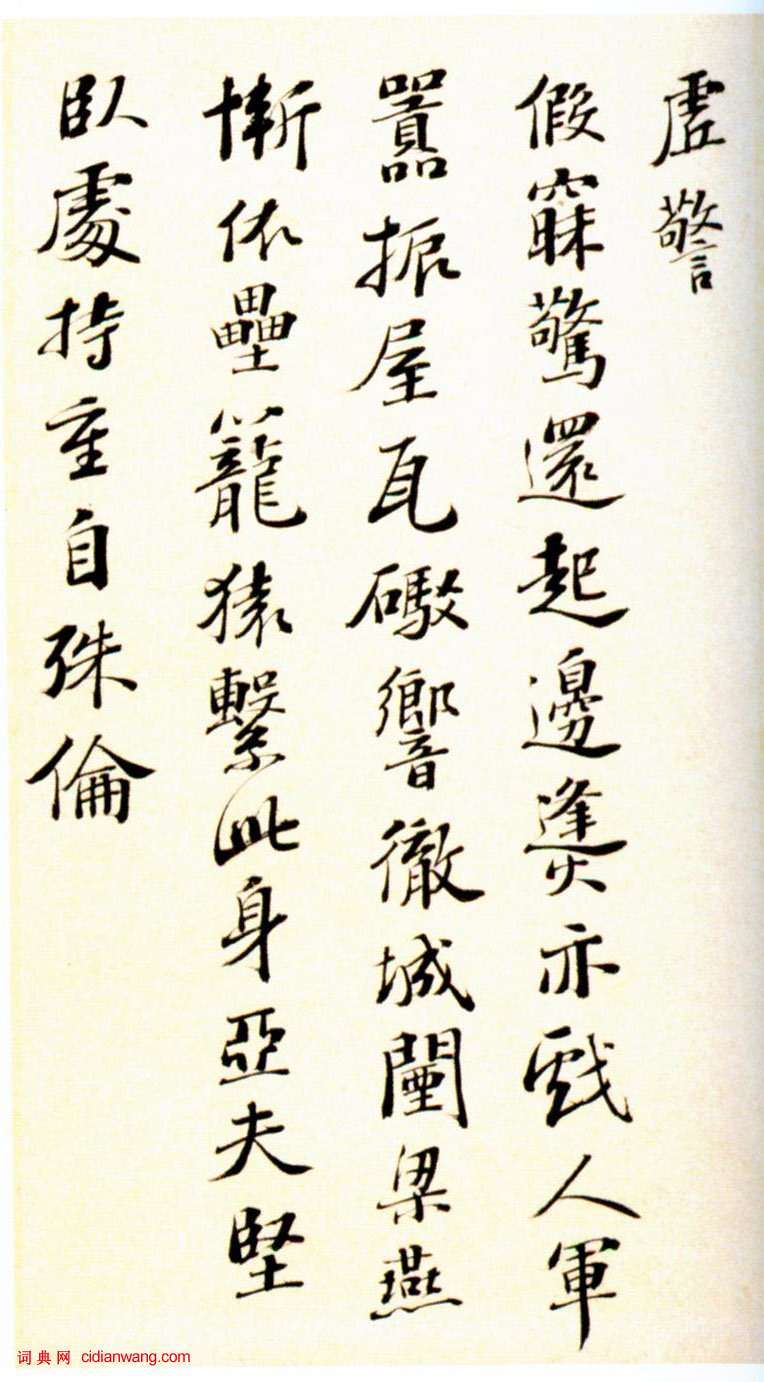 虛警
假寐驚還起邊㷭亦戲人軍
囂振屋瓦礟響徹城闉梁燕
慚依壘籠猿繫此身亞夫堅
臥處持重自殊倫
词典网 cidianwang.com